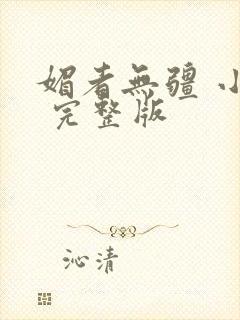 媚者無疆 小
完整版
沁清